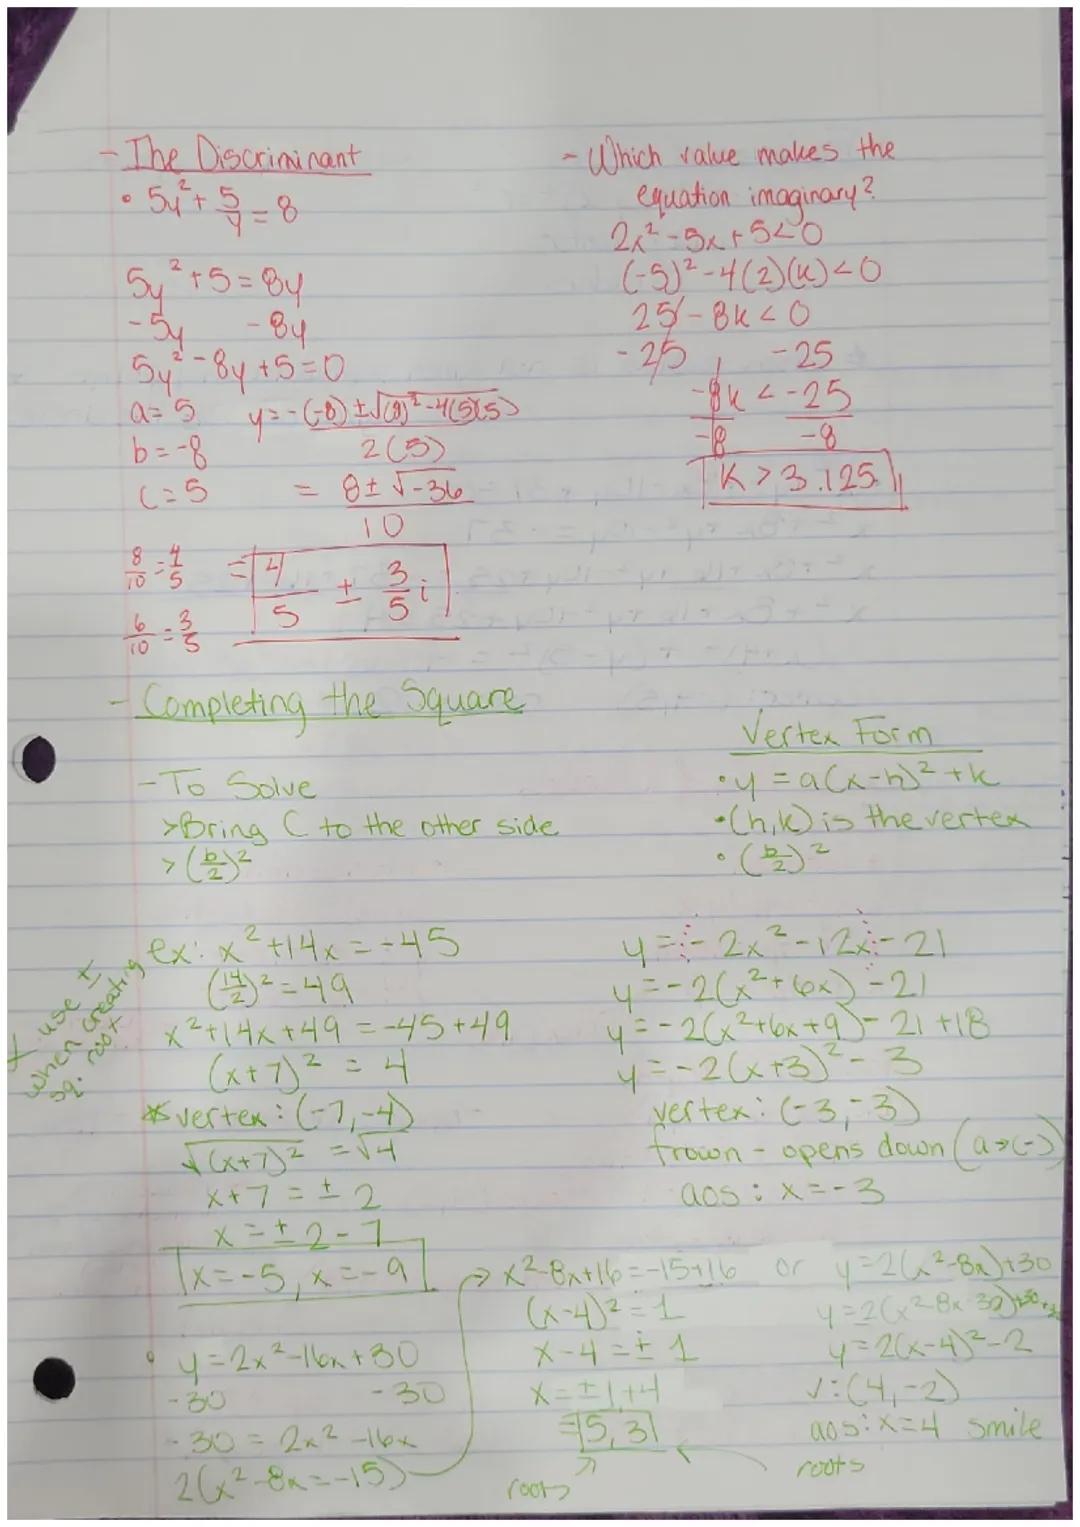 - The Discriminant
• 5y² + 5/y = 8
5y² + 5 = 8y
- 5y - 8y
5y² - 8y + 5 = 0
a = 5 y = -(-8) ± √(8)² - 4(5)(5)
b = -8 2(5)
c = 5 = 8 ± √-36
10
8/10 = 4/5 = 4/5 ± 3/5 i
6/10 = 3/5
- Which value makes the
equation imaginary?
2x² - 5x + 5 < 0
(-5)² - 4(2)(k) < 0
25 - 8k < 0
- 25 - 25
-8k < -25
-8 -8
K > 3.125
- Completing the Square
- To Solve
> Bring C to the other side
> (b/2)²
Vertex Form
• y = a(x-h)² + k
• (h,k) is the vertex
• (b/2)²
ex: x² + 14x = -45
(14/2)² = 49
x² + 14x + 49 = -45 + 49
(x+7)² = 4
* vertex: (-7, -4)
√(x+7)² = √4
x + 7 = ± 2
x = ± 2 - 7
x = -5, x = -9
use ±
when creating
sq. root
y = - 2x² - 12x - 21
y = -2(x² + 6x) - 21
y = -2(x² + 6x + 9) - 21 + 18
y = -2(x+3)² - 3
vertex: (-3, -3)
frown - opens down (a → (-)
aos: x = -3
• y = 2x² - 16x + 30
- 30 - 30
- 30 = 2x² - 16x
2(x² - 8x = -15)
→ x² - 8x + 16 = -15 + 16 or
(x-4)² = 1
x - 4 = ± 1
x = ± 1 + 4
= 5, 3
roots
y = 2(x² - 8x) + 30
y = 2(x-4)² - 2
v: (4, -2)
aos: x = 4 smile
roots